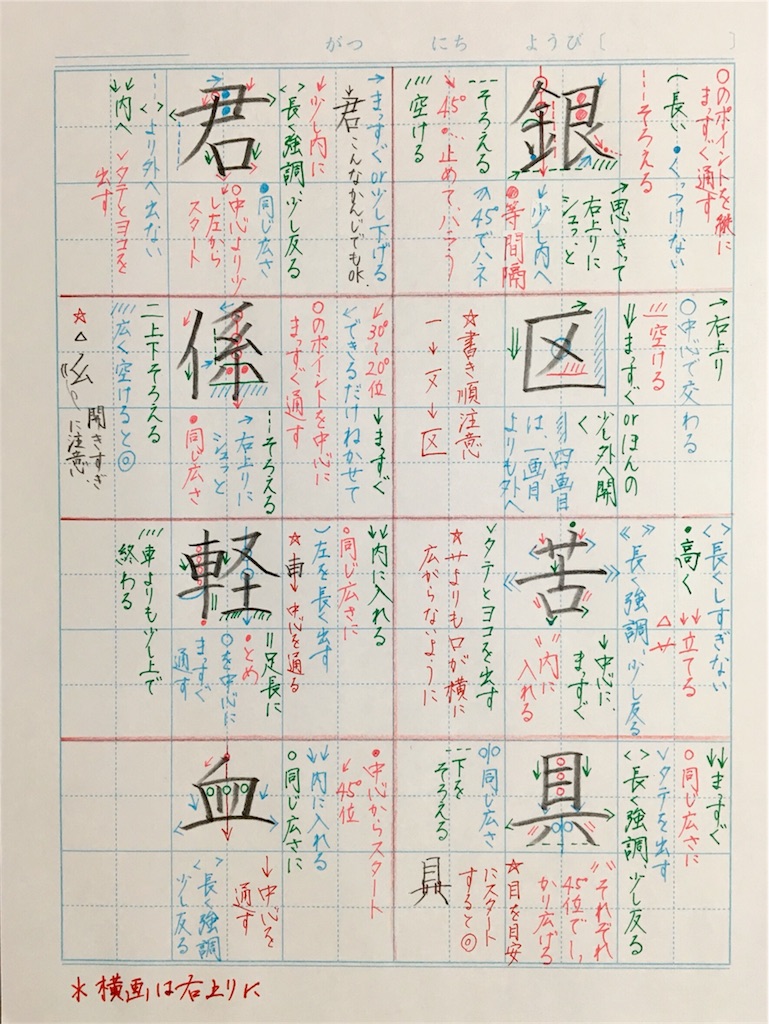 がつ　にち　ようび〔　　〕
銀
○のポイントを縦に
まっすぐ通す
（長い
●くっつけない
---そろえる
→思いきって
右上りに
シュッと
↓少し内へ
●等間隔
---そろえる
45°でハネ
↙45°
止めて、ハラう
////空ける
君
→まっすぐor少し下げる
君 こんなかんじでもOK.
↓少し内に
<>長く強調 少し反る
●同じ広さ
○中心より少
し左から
スタート
↓↓内へ
<>より外へ出ない
∨タテとヨコを
出す
区
→右上り
○中心で交わる
//空ける
↓↓まっすぐorほんの
少し外へ開
く
///四画目
は、一画目
よりも外へ
☆書き順注意
一→又→区
係
↙30°〜20°位
↓まっすぐ
↙できるだけねかせて
○のポイントを中心に
まっすぐ通す
---そろえる
→右上りに
シュッと
●同じ広さ
二上下そろえる
///広く空けると◎
☆△幺
開きすぎ
に注意.
苦
<>長くしすぎない
●高く
↓↓立てる
《》長く強調 少し反る
↓中心に、
まっすぐ
〃内に
入れる
∨タテとヨコを出す
☆艹よりも口が横に
広がらないように
軽
↓↓内に入れる
●同じ広さに
左を長く出す
☆車↓中心を通る
〃足長に
●とめ
○を中心に
まっすぐ
通す
////車よりも少し上で
終わる
具
↓↓まっすぐ
○同じ広さに
∨タテを出す
<>長く強調、少し反る
〃それぞれ
45°位でしっ
かり広げる
☆目を目安
にスタート
すると◎
○|○同じ広さ
---下を
そろえる
具
血
●中心からスタート
↙45°位
↓↓内に入れる
○同じ広さに
↓中心を
通す
<>長く強調
少し反る
＊横画は右上りに